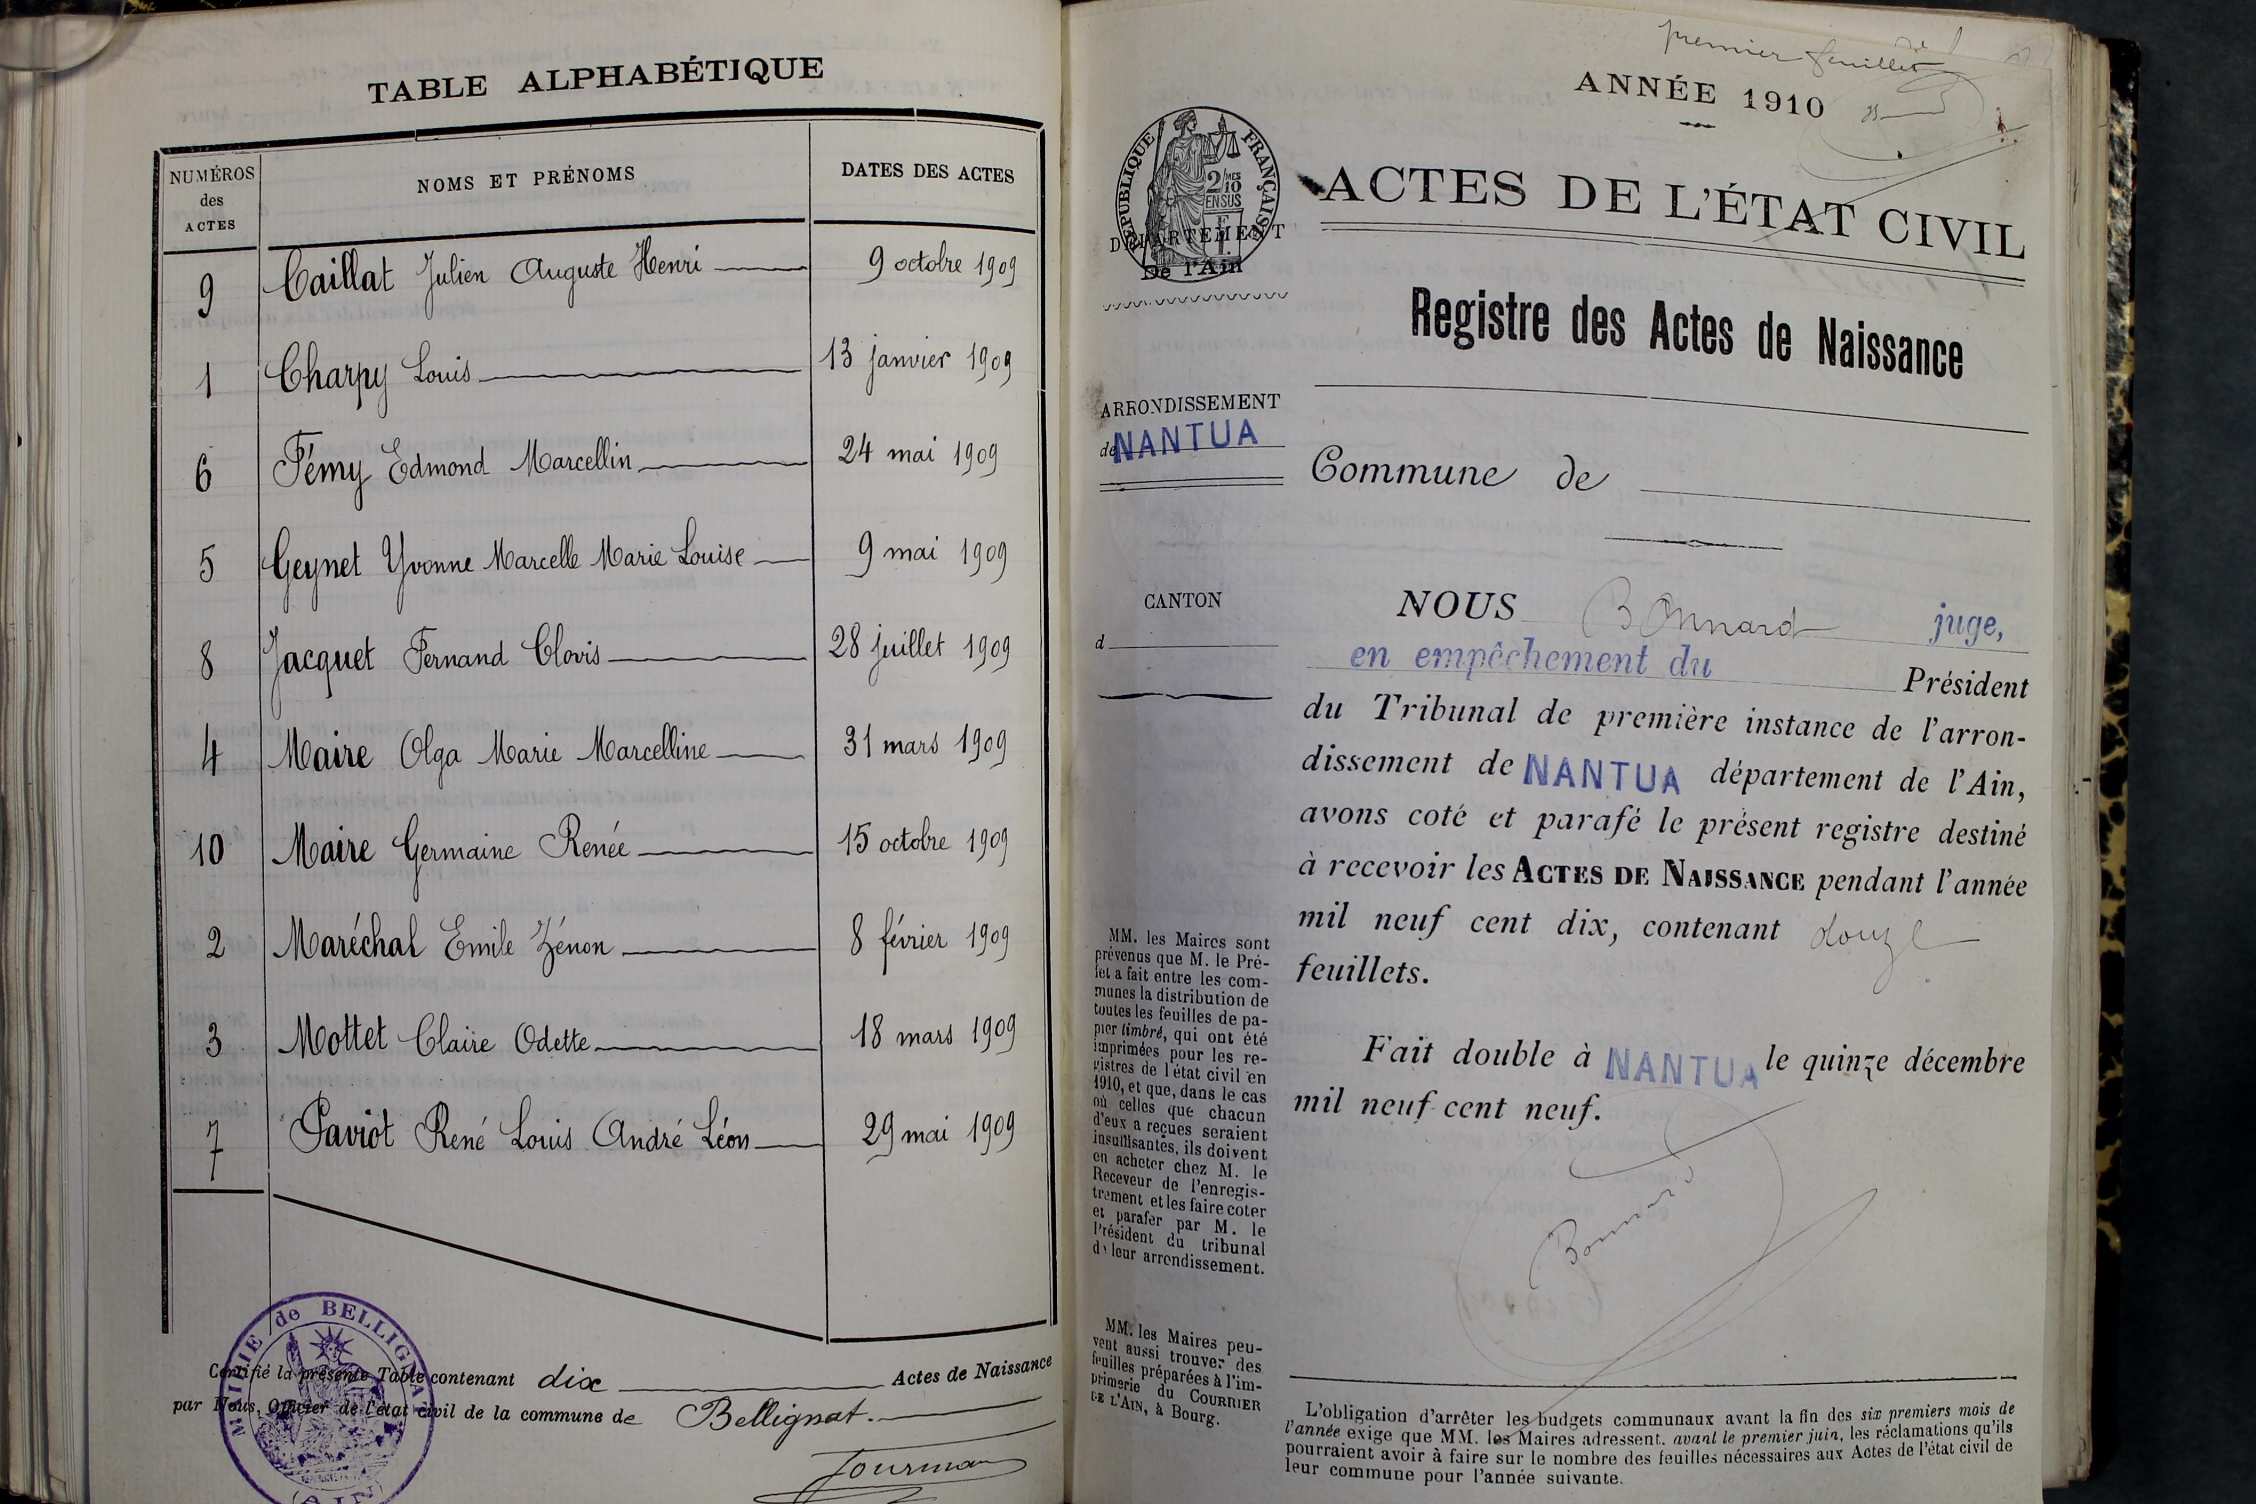 TABLE ALPHABÉTIQUE
NUMÉROS
des
ACTES
NOMS ET PRÉNOMS
DATES DES ACTES
9 Caillat Julien Auguste Henri 9 octobre 1909
1 Charpy Louis 13 janvier 1909
6 Fémy Edmond Marcellin 24 mai 1909
5 Geynet Yvonne Marcelle Marie Louise 9 mai 1909
8 Jacquet Fernand Clovis 28 juillet 1909
4 Maire Olga Marie Marcelline 31 mars 1909
10 Maire Germaine Renée 15 octobre 1909
2 Maréchal Emile Zénon 8 février 1909
3 Mottet Claire Odette 18 mars 1909
7 Paviot René Louis André Léon 29 mai 1909
Certifié la présente Table contenant dix Actes de Naissance
par Nous, Officier de l'état civil de la commune de Bellignat.
MAIRIE de BELLIGNAT
(AIN)
premier feuillet
ANNÉE 1910
RÉPUBLIQUE FRANÇAISE
2/10 MES
EN SUS
DÉPARTEMENT
De l'Ain
ACTES DE L'ÉTAT CIVIL
Registre des Actes de Naissance
ARRONDISSEMENT
de NANTUA
Commune de
CANTON
d
NOUS Bonnard juge,
en empêchement du
Président
du Tribunal de première instance de l'arron-
dissement de NANTUA département de l'Ain,
avons coté et parafé le présent registre destiné
à recevoir les ACTES DE NAISSANCE pendant l'année
mil neuf cent dix, contenant douze
feuillets.
Fait double à NANTUA le quinze décembre
mil neuf cent neuf.
Bonnard
MM. les Maires sont
prévenus que M. le Pré-
fet a fait entre les com-
munes la distribution de
toutes les feuilles de pa-
pier timbré, qui ont été
imprimées pour les re-
gistres de l'état civil en
1910, et que, dans le cas
où celles que chacun
d'eux a reçues seraient
insuffisantes, ils doivent
en acheter chez M. le
Receveur de l'enregis-
trement et les faire coter
et parafer par M. le
Président du tribunal
de leur arrondissement.
MM. les Maires peu-
vent aussi trouver des
feuilles préparées à l'im-
primerie du COURRIER
DE L'AIN, à Bourg.
L'obligation d'arrêter les budgets communaux avant la fin des six premiers mois de
l'année exige que MM. les Maires adressent, avant le premier juin, les réclamations qu'ils
pourraient avoir à faire sur le nombre des feuilles nécessaires aux Actes de l'état civil de
leur commune pour l'année suivante.